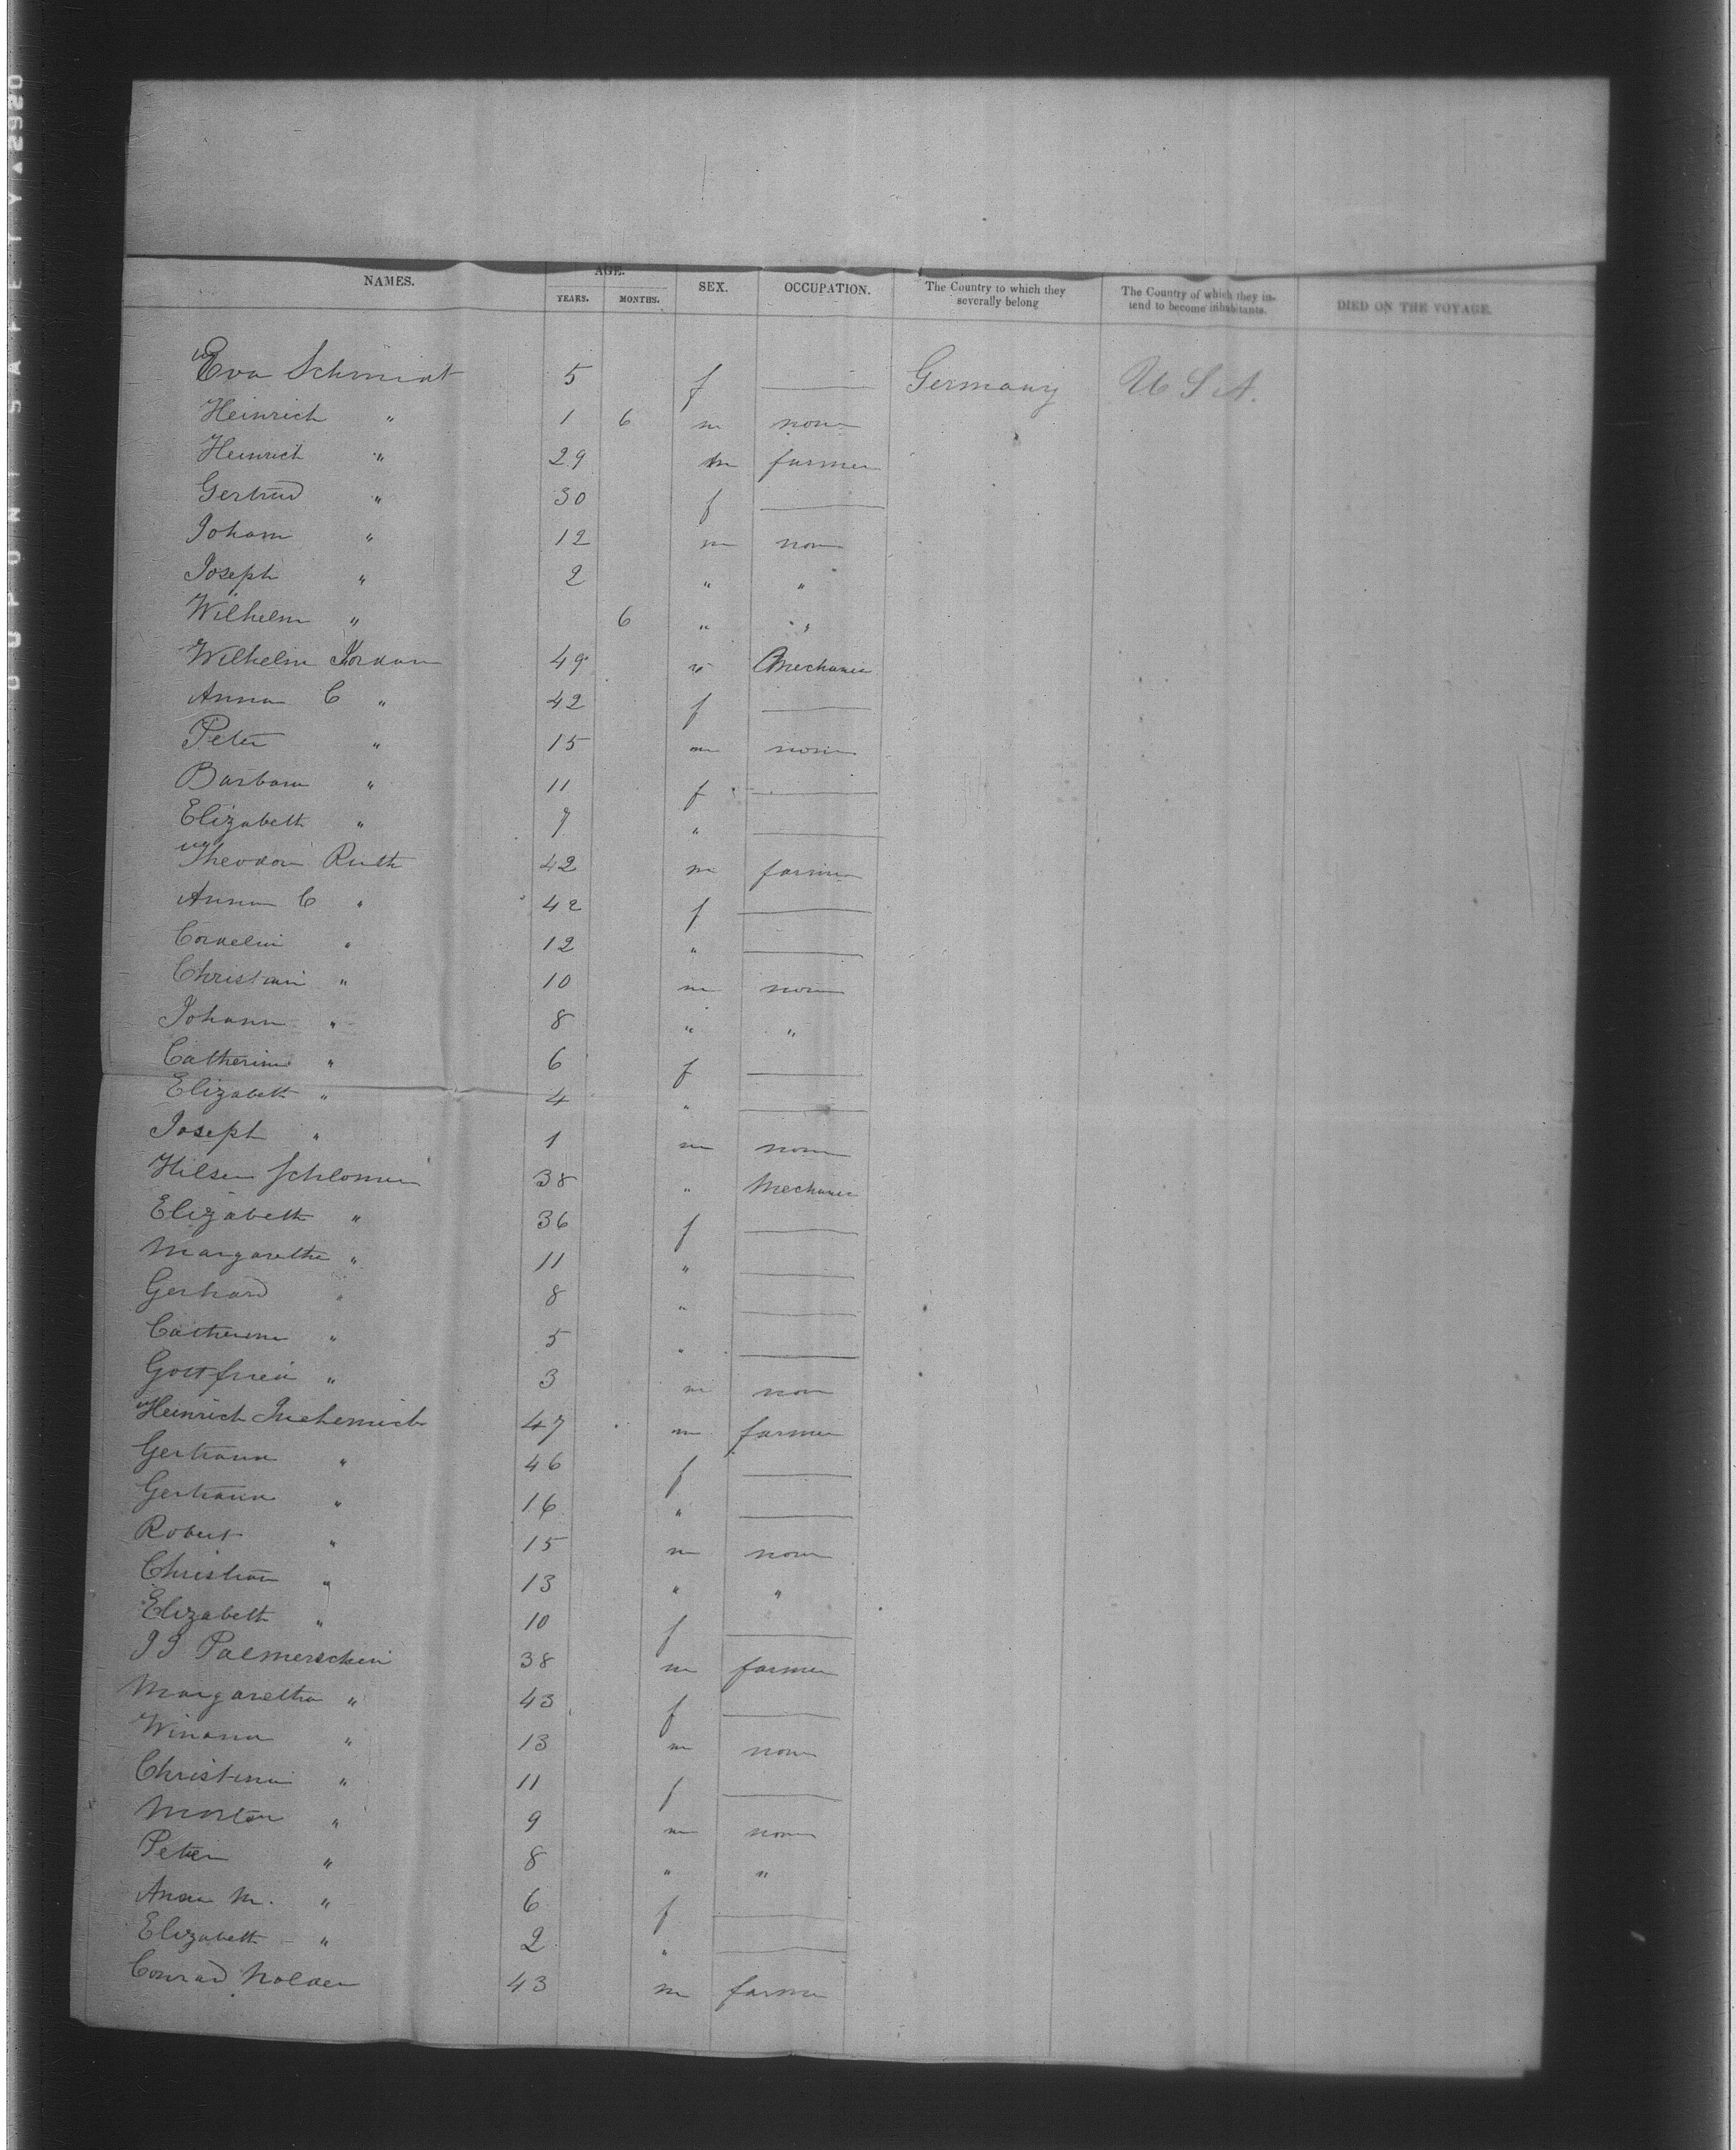 NAMES. AGE. YEARS. MONTHS. SEX. OCCUPATION. The Country to which they severally belong The Country of which they intend to become inhabitants. DIED ON THE VOYAGE.
Eva Schmidt 5 f — Germany U S A.
Heinrich " 1 6 m none
Heinrich " 29 m farmer
Gertrud " 30 f —
Johann " 12 m none
Joseph " 2 " "
Wilhelm " 6 " "
Wilhelm Jordan 49 " Mechanic
Anna C " 42 f —
Peter " 15 m none
Barbara " 11 f —
Elizabeth " 7 " —
Theodor Ruth 42 m farmer
Anna C " 42 f —
Cornelia " 12 " —
Christian " 10 m none
Johann " 8 " "
Catherine " 6 f —
Elizabeth " 4 " —
Joseph " 1 m none
38 " Mechanic
Elizabeth " 36 f —
Margarethe " 11 " —
Gerhard " 8 " —
Catherine " 5 " —
Gottfried " 3 m none
Heinrich 47 m farmer
" 46 f —
" 16 " —
Robert " 15 m none
Christian " 13 " "
Elizabeth " 10 f —
38 m farmer
Margaretha " 43 f —
" 13 m none
Christina " 11 f —
" 9 m none
Peter " 8 " "
Anna M. " 6 f —
Elizabeth " 2 " —
Conrad Nolden 43 m farmer
DUPONT SAFETY ▲ 2920